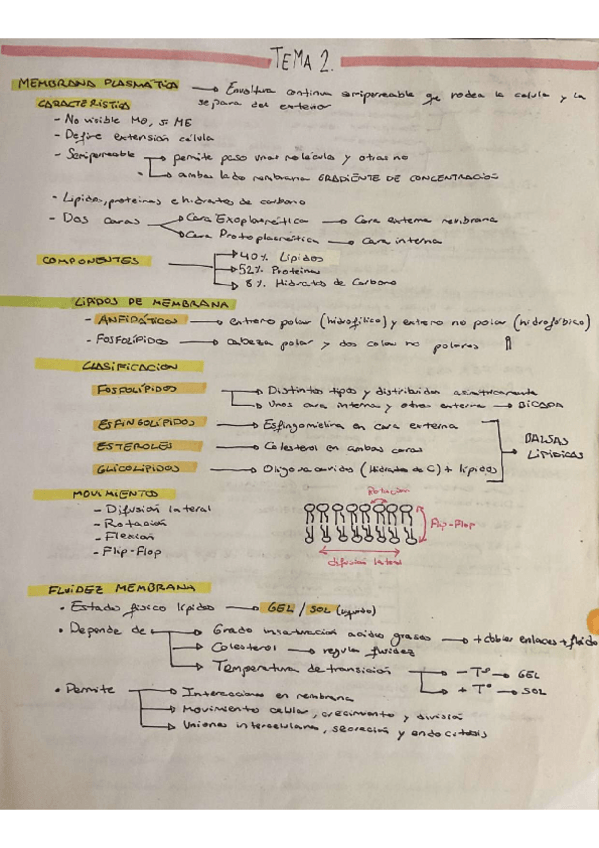 TEMA 2.
MEMBRANA PLASMÁTICA → Envoltura continua semipermeable que rodea la celula y la
separa del exterior
CARACTERÍSTICA
- No visible MO, si ME
- Define extensión célula
- Semipermeable → permite paso unas molécula y otras no
→ ambos lado membrana GRADIENTE DE CONCENTRACIÓN
- Lípidos, proteinas e hidratos de carbono
- Dos caras → Cara Exoplasmática → Cara externa membrana
→ Cara Protoplasmática → Cara interna
COMPONENTES → 40% Lípidos
→ 52% Proteinas
→ 8% Hidratos de Carbono
LÍPIDOS DE MEMBRANA
- ANFIPÁTICOS → extremo polar (hidrofílico) y extremo no polar (hidrofóbico)
- FOSFOLÍPIDOS → cabeza polar y dos colas no polares
CLASIFICACION
FOSFOLÍPIDOS → Distintos tipos y distribuidos asimétricamente
→ Unos cara interna y otros externa → BICAPA
ESFINGOLÍPIDOS → Esfingomielina en cara externa
ESTEROLES → Colesterol en ambas caras
GLICOLIPIDOS → Oligosacarido (Hidratos de C) + lípidos
BALSAS
LIPIDICAS
MOVIMIENTOS
- Difusión lateral
- Rotación
- Flexión
- Flip-Flop
Rotación
Flip-Flop
difusión lateral
FLUIDEZ MEMBRANA
• Estado físico lípidos → GEL / SOL (líquido)
• Depende de → Grado insaturación acidos grasos → + dobles enlaces + fluido
→ Colesterol → regula fluidez
→ Temperatura de transición → - Tº → GEL
→ + Tº → SOL
• Permite → Interacciones en membrana
→ Movimiento celular, crecimiento y división
→ Uniones intercelulares, secreción y endocitosis